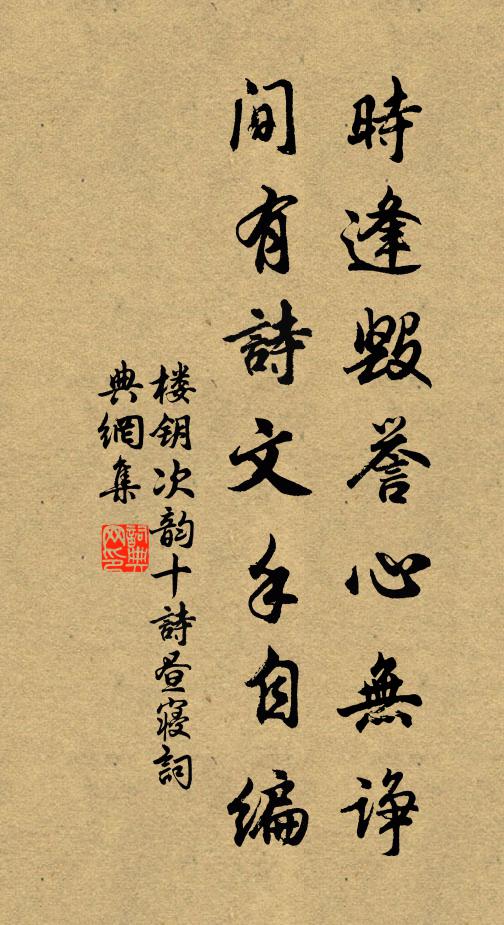 時逢毁誉心無諍
间有詩文手自编
楼钥次韵十詩昼寝詞
典網集
詞典網印